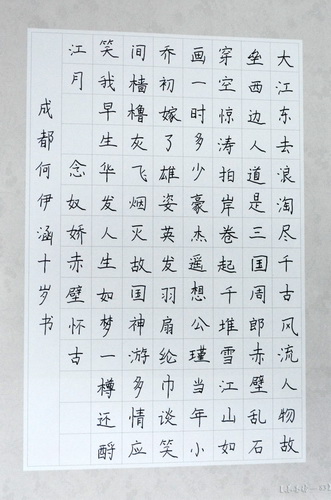 大江东去浪淘尽千古风流人物故
垒西边人道是三国周郎赤壁乱石
穿空惊涛拍岸卷起千堆雪江山如
画一时多少豪杰遥想公瑾当年小
乔初嫁了雄姿英发羽扇纶巾谈笑
间樯橹灰飞烟灭故国神游多情应
笑我早生华发人生如梦一樽还酹
江月 念奴娇赤壁怀古
成都何伊涵十岁书